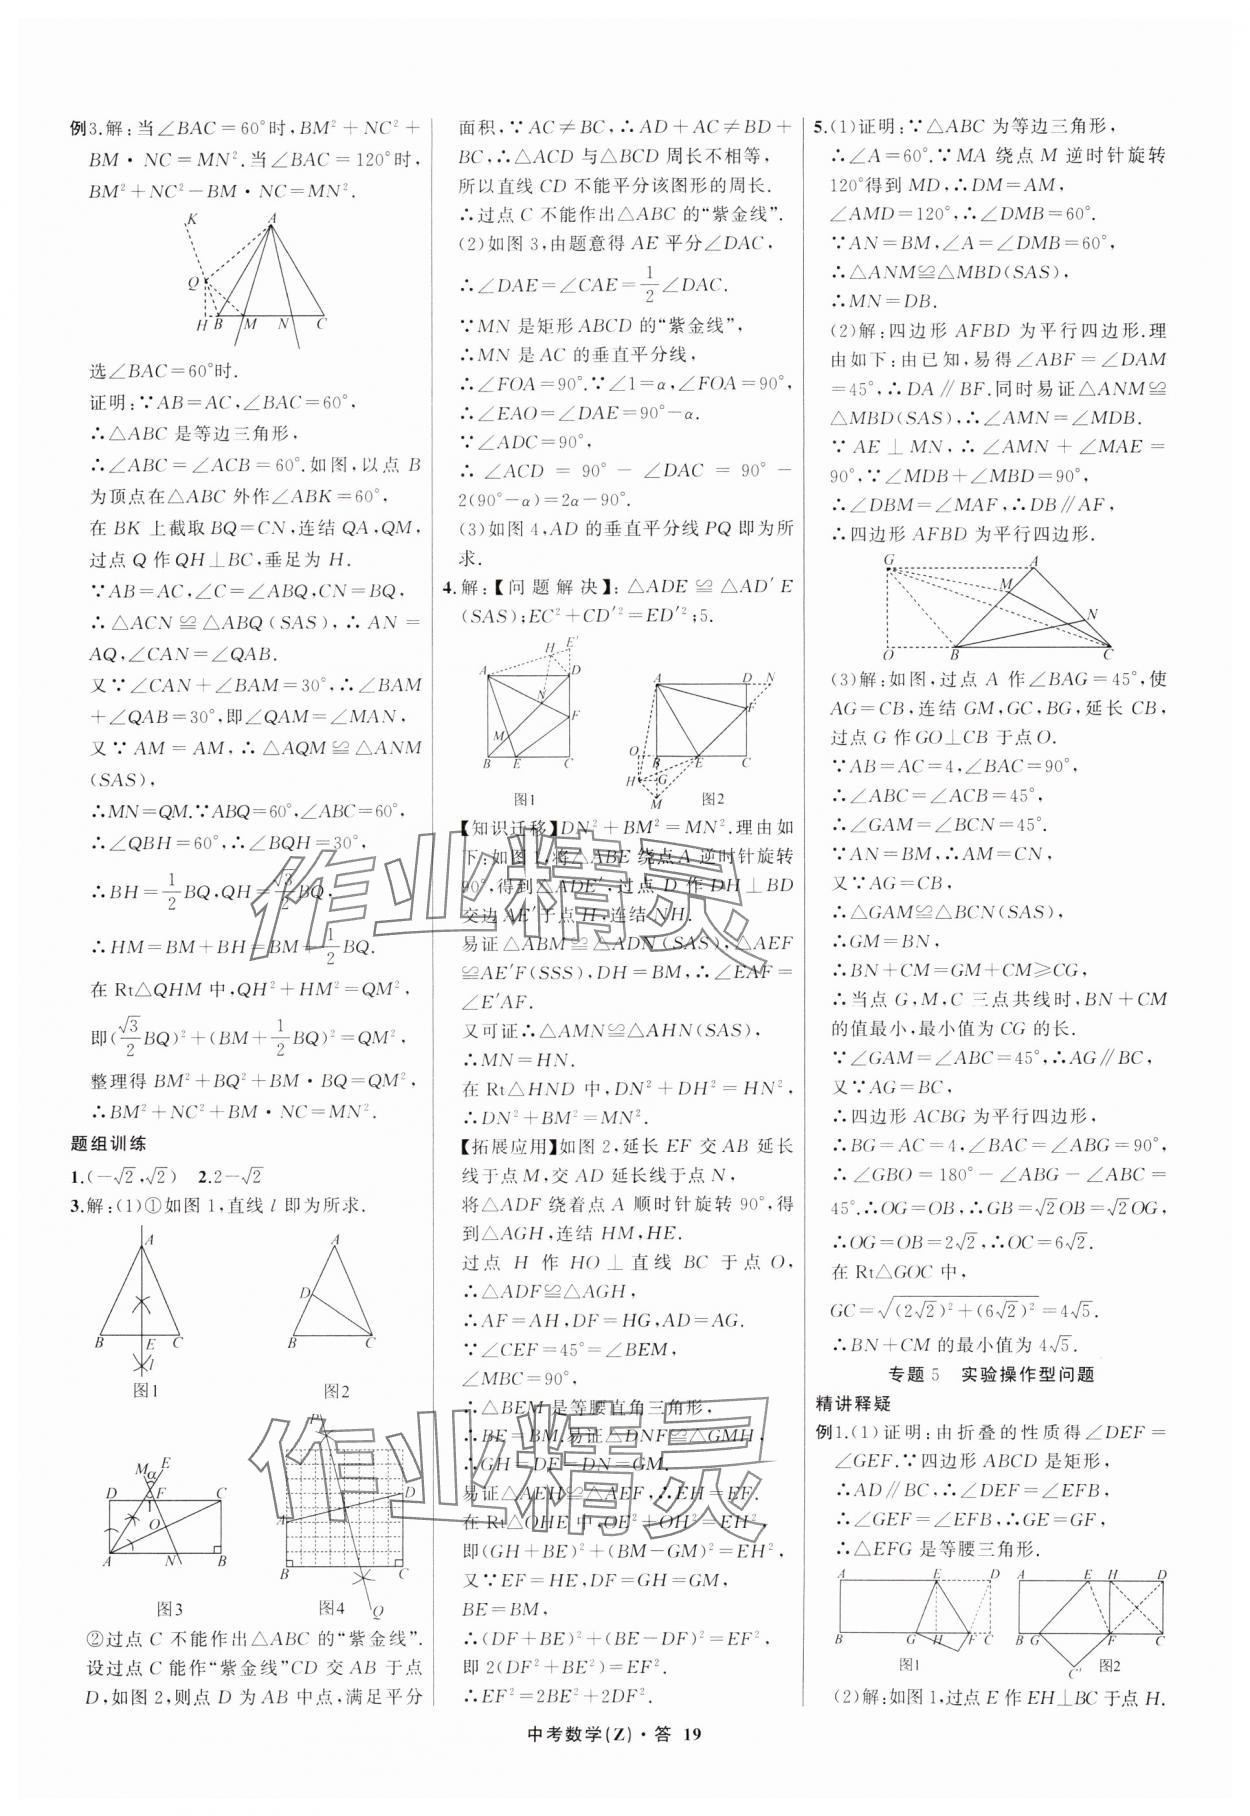 例3.解:当∠BAC=60°时,BM²+NC²+
BM·NC=MN².当∠BAC=120°时,
BM²+NC²-BM·NC=MN².
K
A
Q
H B M N C
选∠BAC=60°时.
证明:∵AB=AC,∠BAC=60°,
∴△ABC是等边三角形,
∴∠ABC=∠ACB=60°.如图,以点B
为顶点在△ABC外作∠ABK=60°,
在BK上截取BQ=CN,连结QA,QM,
过点Q作QH⊥BC,垂足为H.
∵AB=AC,∠C=∠ABQ,CN=BQ,
∴△ACN≌△ABQ(SAS),∴AN=
AQ,∠CAN=∠QAB.
又∵∠CAN+∠BAM=30°,∴∠BAM
+∠QAB=30°,即∠QAM=∠MAN,
又∵AM=AM,∴△AQM≌△ANM
(SAS),
∴MN=QM.∵∠ABQ=60°,∠ABC=60°,
∴∠QBH=60°,∴∠BQH=30°,
∴BH=1/2BQ,QH=√3/2BQ.
∴HM=BM+BH=BM+1/2BQ.
在Rt△QHM中,QH²+HM²=QM²,
即(√3/2BQ)²+(BM+1/2BQ)²=QM²,
整理得BM²+BQ²+BM·BQ=QM²,
∴BM²+NC²+BM·NC=MN².
题组训练
1.(-√2,√2) 2.2-√2
3.解:(1)①如图1,直线l即为所求.
A
B E C
l
图1
A
D
B C
图2
M α E
F C
1
O
A N B
图3
P
D
A
B C
Q
图4
②过点C不能作出△ABC的“紫金线”.
设过点C能作“紫金线”CD交AB于点
D,如图2,则点D为AB中点,满足平分
面积,∵AC≠BC,∴AD+AC≠BD+
BC,∴△ACD与△BCD周长不相等,
所以直线CD不能平分该图形的周长.
∴过点C不能作出△ABC的“紫金线”.
(2)如图3,由题意得AE平分∠DAC,
∴∠DAE=∠CAE=1/2∠DAC.
∵MN是矩形ABCD的“紫金线”,
∴MN是AC的垂直平分线,
∴∠FOA=90°.∵∠1=α,∠FOA=90°,
∴∠EAO=∠DAE=90°-α.
∵∠ADC=90°,
∴∠ACD=90°-∠DAC=90°-
2(90°-α)=2α-90°.
(3)如图4,AD的垂直平分线PQ即为所
求.
4.解:【问题解决】:△ADE≌△AD′E
(SAS);EC²+CD′²=ED′²;5.
H E′
A D
N
F
M
B E C
图1
A D N
F
O B E C
H G
M
图2
【知识迁移】DN²+BM²=MN².理由如
下:如图1,将△ABE绕点A逆时针旋转
90°,得到△ADE′,过点D作DH⊥BD
交边AE′于点H,连结NH.
易证△ABM≌△ADN(SAS),△AEF
≌AE′F(SSS),DH=BM,∴∠EAF=
∠E′AF.
又可证∴△AMN≌△AHN(SAS),
∴MN=HN.
在Rt△HND中,DN²+DH²=HN²,
∴DN²+BM²=MN².
【拓展应用】如图2,延长EF交AB延长
线于点M,交AD延长线于点N,
将△ADF绕着点A顺时针旋转90°,得
到△AGH,连结HM,HE.
过点H作HO⊥直线BC于点O,
∴△ADF≌△AGH,
∴AF=AH,DF=HG,AD=AG.
∵∠CEF=45°=∠BEM,
∠MBC=90°,
∴△BEM是等腰直角三角形,
∴BE=BM.易证△DNF≌△GMH,
∴GH=DF=DN=GM.
易证△AEH≌△AEF,∴EH=EF.
在Rt△OHE中,OE²+OH²=EH²,
即(GH+BE)²+(BM-GM)²=EH²,
又∵EF=HE,DF=GH=GM,
BE=BM,
∴(DF+BE)²+(BE-DF)²=EF²,
即2(DF²+BE²)=EF².
∴EF²=2BE²+2DF².
5.(1)证明:∵△ABC为等边三角形,
∴∠A=60°.∵MA绕点M逆时针旋转
120°得到MD,∴DM=AM,
∠AMD=120°,∴∠DMB=60°.
∵AN=BM,∠A=∠DMB=60°,
∴△ANM≌△MBD(SAS),
∴MN=DB.
(2)解:四边形AFBD为平行四边形.理
由如下:由已知,易得∠ABF=∠DAM
=45°,∴DA∥BF.同时易证△ANM≌
△MBD(SAS),∴∠AMN=∠MDB.
∵AE⊥MN,∴∠AMN+∠MAE=
90°,∵∠MDB+∠MBD=90°,
∴∠DBM=∠MAF,∴DB∥AF,
∴四边形AFBD为平行四边形.
G A
M
N
O B C
(3)解:如图,过点A作∠BAG=45°,使
AG=CB,连结GM,GC,BG,延长CB,
过点G作GO⊥CB于点O.
∵AB=AC=4,∠BAC=90°,
∴∠ABC=∠ACB=45°,
∴∠GAM=∠BCN=45°.
∵AN=BM,∴AM=CN,
又∵AG=CB,
∴△GAM≌△BCN(SAS),
∴GM=BN,
∴BN+CM=GM+CM≥CG,
∴当点G,M,C三点共线时,BN+CM
的值最小,最小值为CG的长.
∵∠GAM=∠ABC=45°,∴AG∥BC,
又∵AG=BC,
∴四边形ACBG为平行四边形,
∴BG=AC=4,∠BAC=∠ABG=90°,
∴∠GBO=180°-∠ABG-∠ABC=
45°.∴OG=OB,∴GB=√2OB=√2OG,
∴OG=OB=2√2,∴OC=6√2.
在Rt△GOC中,
GC=√((2√2)²+(6√2)²)=4√5.
∴BN+CM的最小值为4√5.
专题5 实验操作型问题
精讲释疑
例1.(1)证明:由折叠的性质得∠DEF=
∠GEF.∵四边形ABCD是矩形,
∴AD∥BC,∴∠DEF=∠EFB,
∴∠GEF=∠EFG,∴GE=GF,
∴△EFG是等腰三角形.
A E D
B G H F C
图1
A E H D
B G F C
C′
图2
(2)解:如图1,过点E作EH⊥BC于点H.
中考数学(Z)·答 19
作业精灵
作业精灵